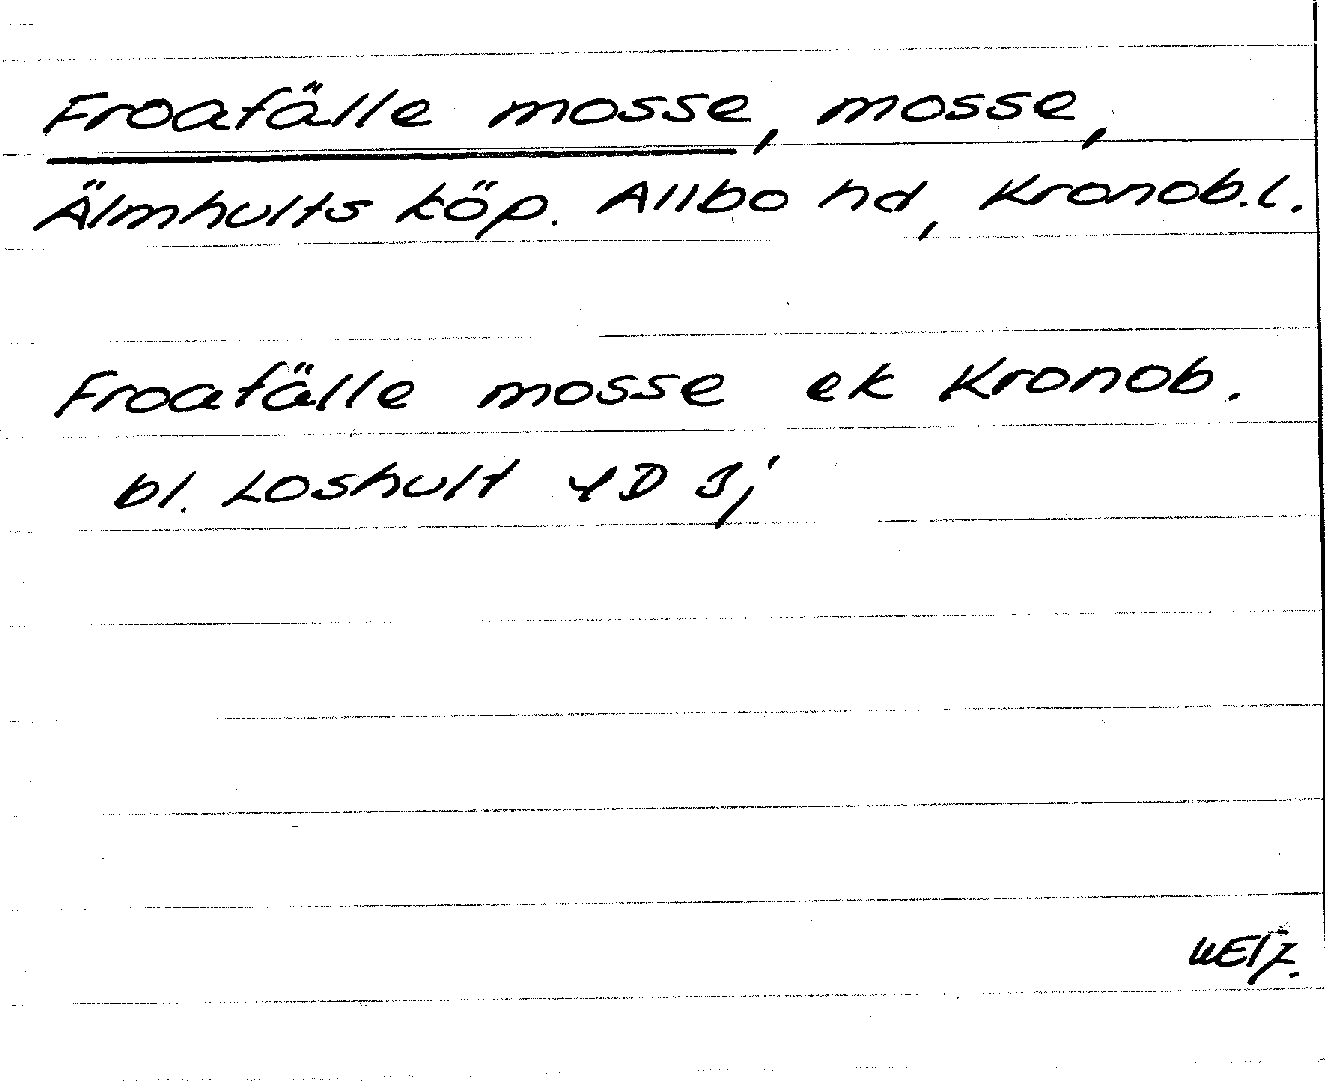 Froafälle mosse, mosse,
Älmhults köp. Allbo hd, Kronob.l.
Froafälle mosse ek Kronob.
bl. Loshult 4D 3j